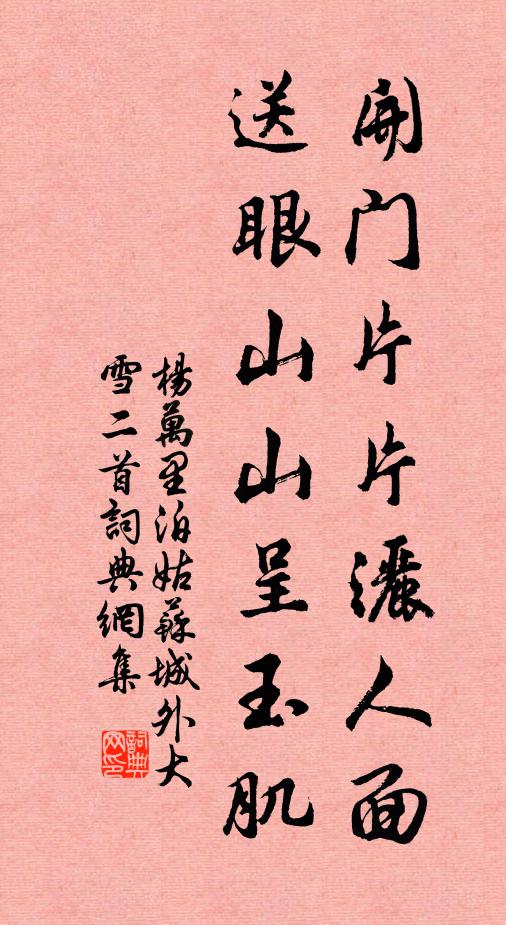 開门片片灑人面
送眼山山呈玉肌
楊萬里泊姑蘇城外大
雪二首詞典網集
詞典
网印